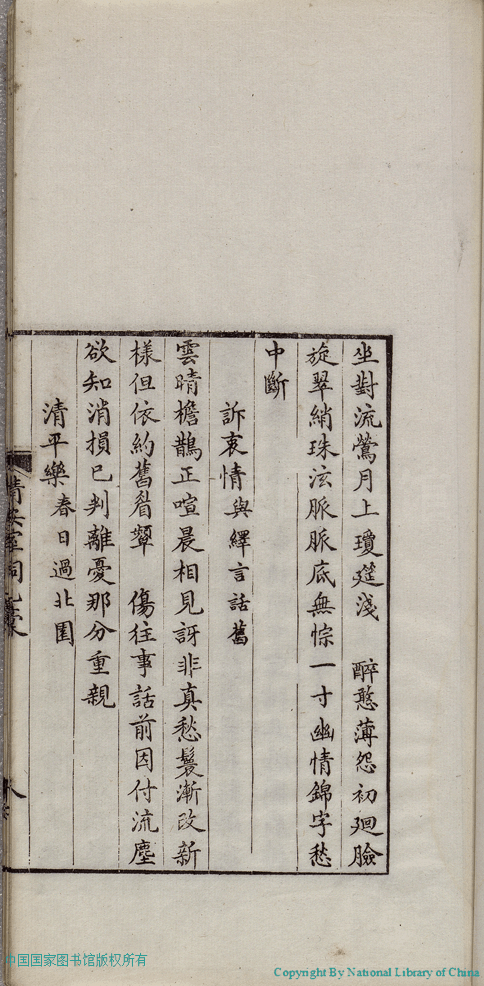 坐對流鶯月上瓊筵淺　醉憨薄怨初廻臉
旋翠綃珠泫脈脈底無悰一寸幽情錦字愁
中斷
訴衷情與繹言話舊
雲晴檐鵲正喧晨相見訝非真愁鬟漸改新
樣但依約舊眉顰　傷往事話前因付流塵
欲知消損已判離憂那分重親
清平樂春日過北園
中国国家图书馆版权所有
Copyright By National Library of China